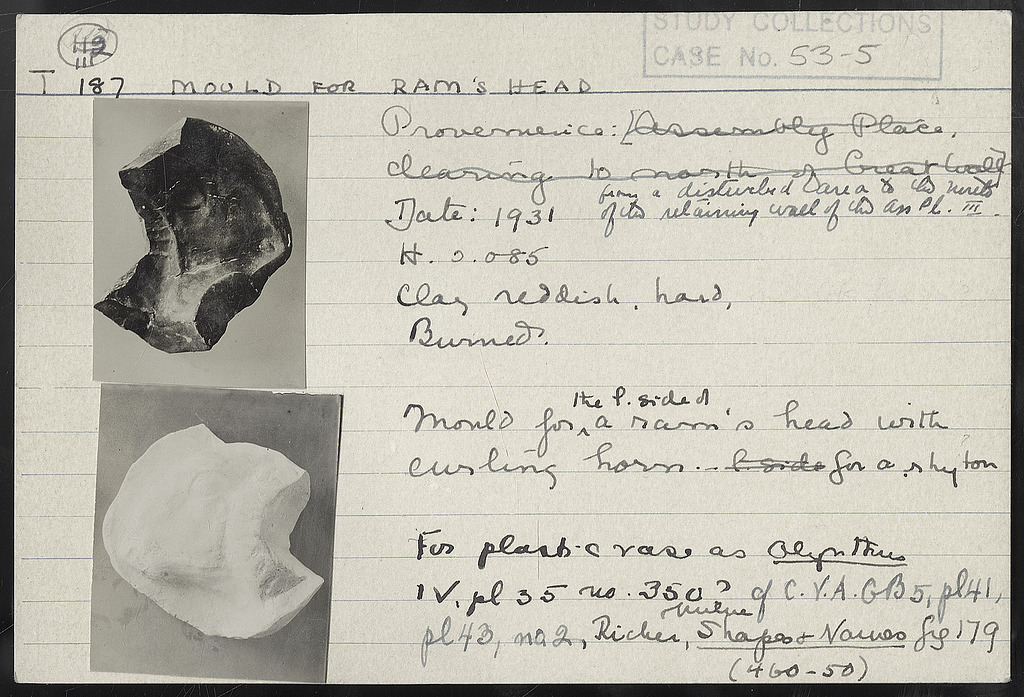 STUDY COLLECTIONS
CASE No. 53-5
H2
III
T 187 MOULD FOR RAM'S HEAD
Provenience: [Assembly Place,
clearing to north of Great Wall]
from a disturbed area to the north
of the retaining wall of the Ass Pl. III.
Date: 1931
H. 0.085
Clay reddish, hard,
Burned.
Mould for the l. side of a ram's head with
curling horn. - l. side for a rhyton
For plastic vase as Olynthus
IV, pl 35 no. 350? cf C.V.A. GB 5, pl 41,
pl 43, no 2, Richter, Milne, Shapes & Names fig 179
(460-50)